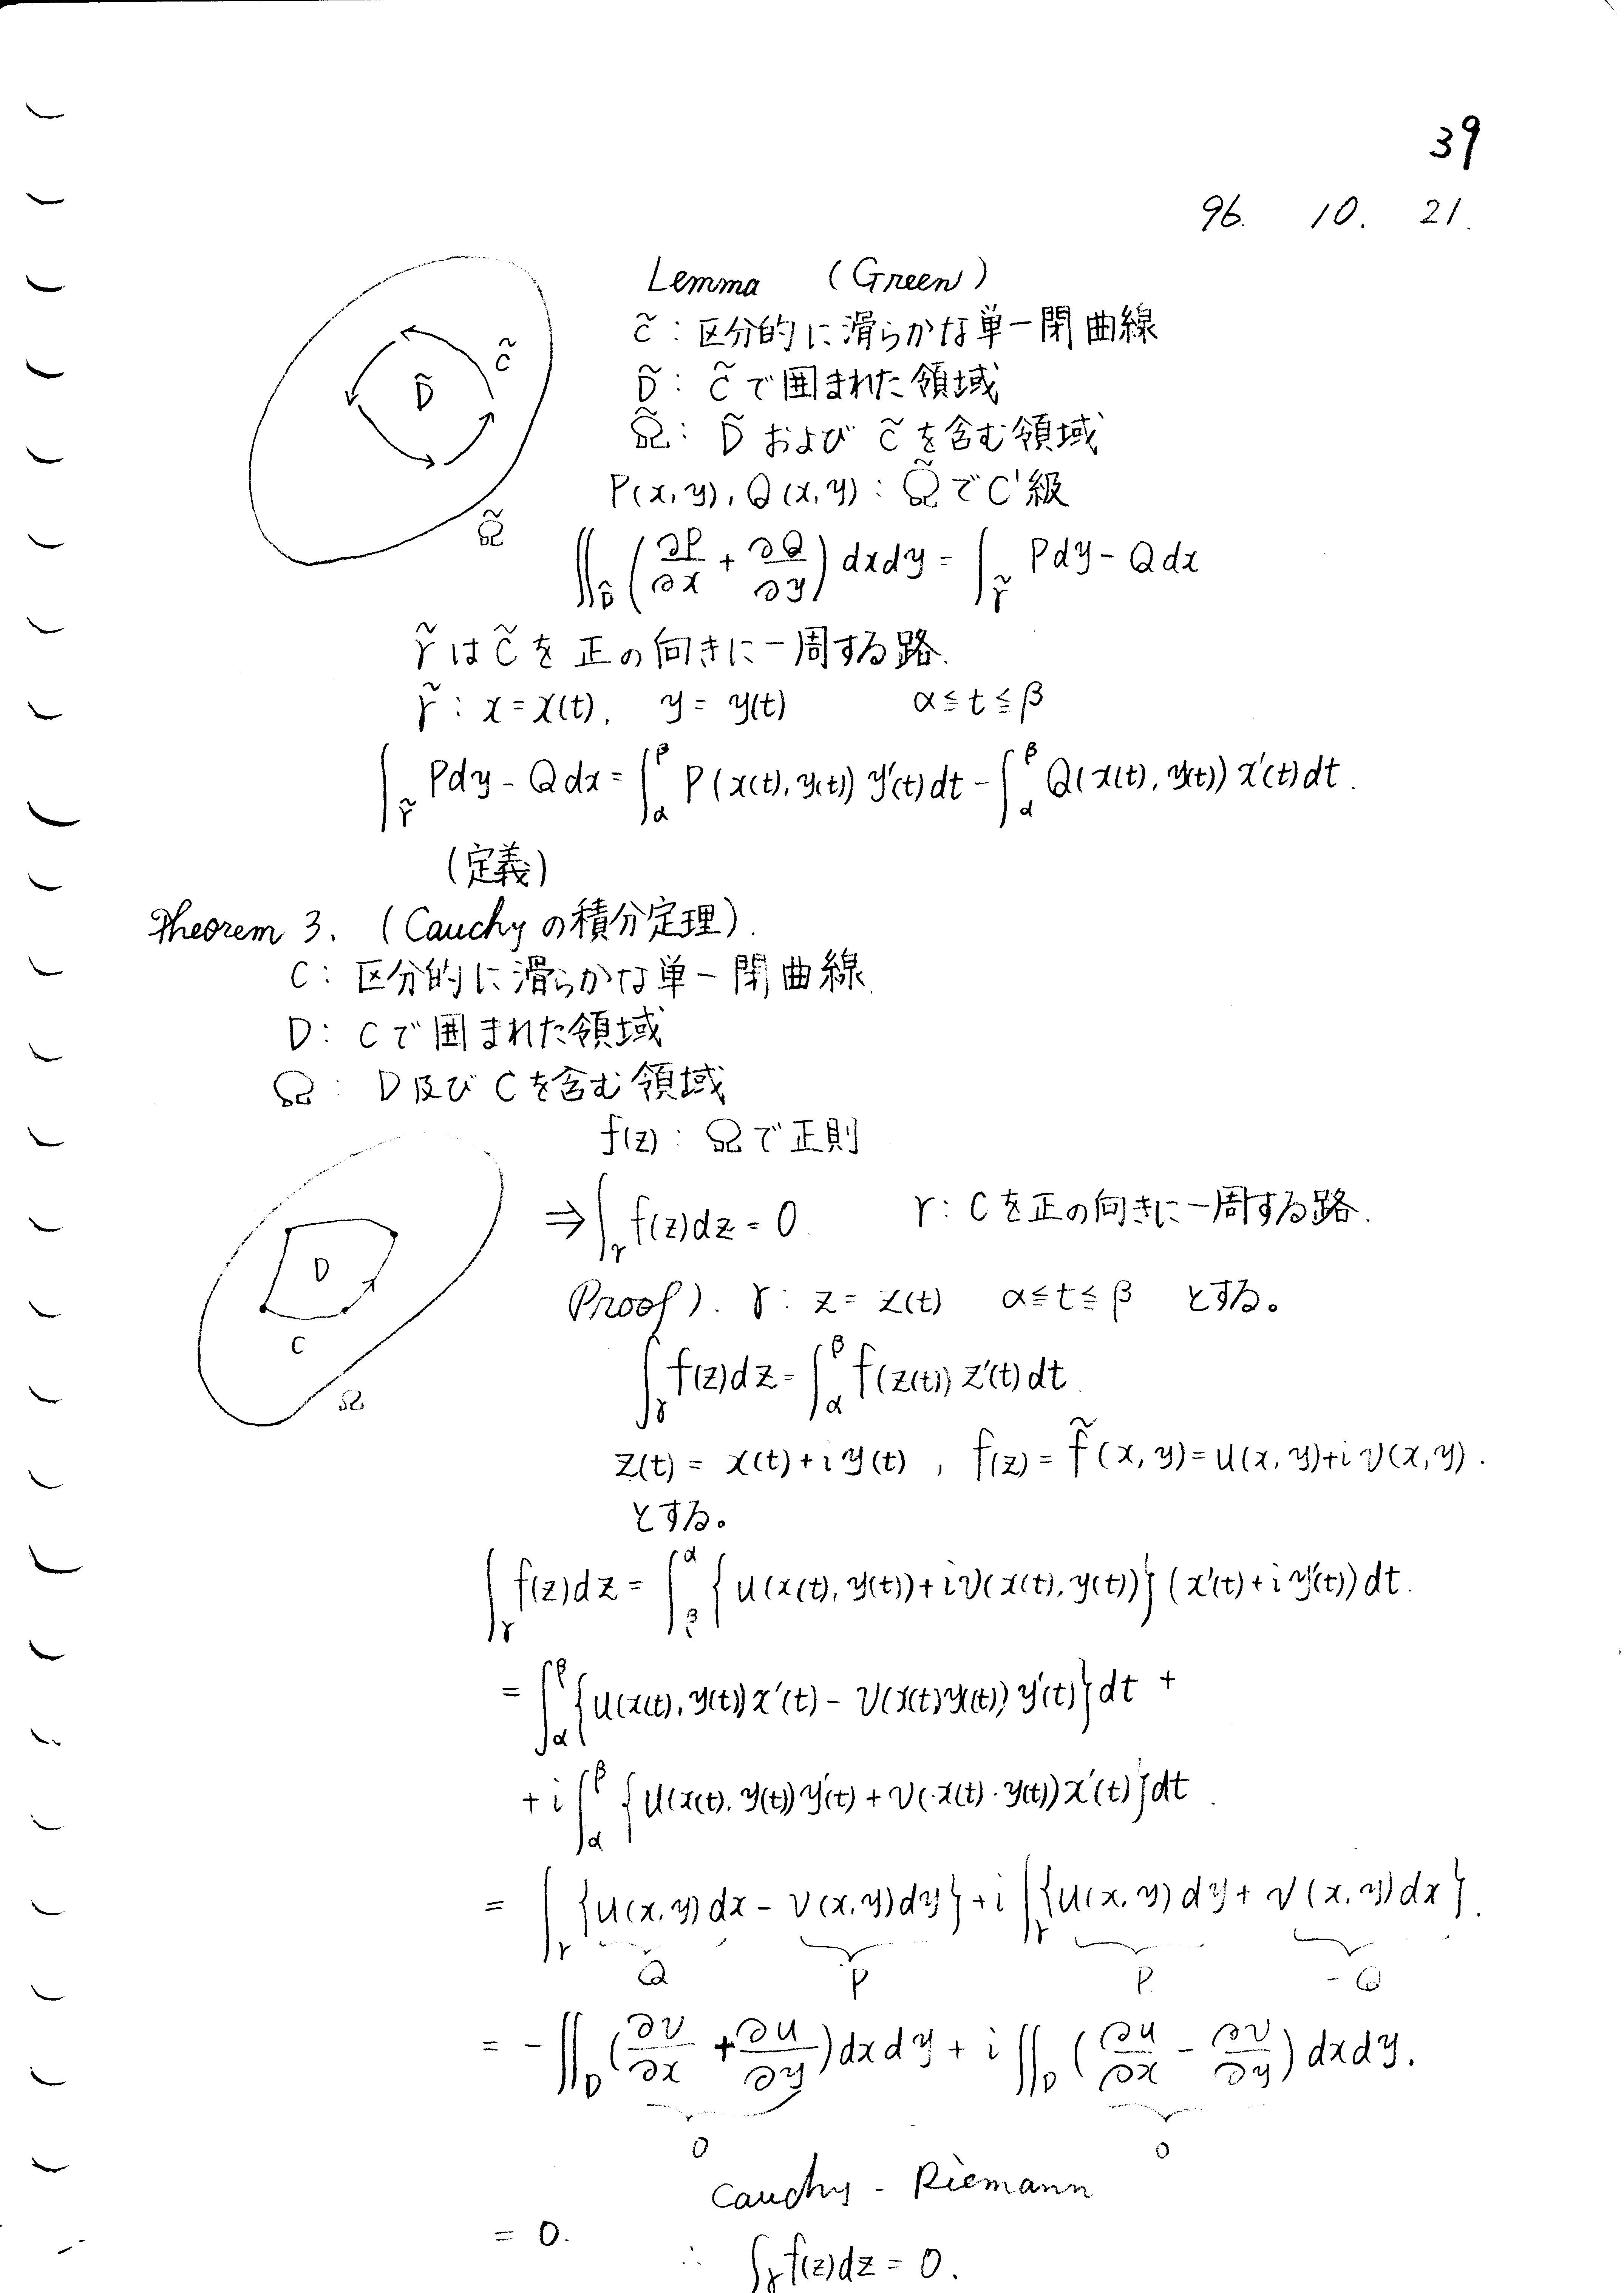 39
96. 10. 21.
Lemma (Green)
C̃ : 区分的に滑らかな単一閉曲線
D̃ : C̃で囲まれた領域
Ω̃ : D̃ および C̃を含む領域
P(x,y), Q(x,y) : Ω̃でC¹級
C̃
D̃
Ω̃
∬_D̃ (∂P/∂x + ∂Q/∂y) dxdy = ∫_γ̃ Pdy - Qdx
γ̃はC̃を正の向きに一周する路.
γ̃ : x = x(t), y = y(t) α≦t≦β
∫_γ̃ Pdy - Qdx = ∫_α^β P(x(t), y(t)) y'(t)dt - ∫_α^β Q(x(t), y(t)) x'(t)dt.
(定義)
Theorem 3. (Cauchyの積分定理).
C : 区分的に滑らかな単一閉曲線.
D : Cで囲まれた領域
Ω : D及びCを含む領域
f(z) : Ωで正則
⇒ ∫_γ f(z)dz = 0 γ : Cを正の向きに一周する路.
D
C
Ω
Proof). γ : z = z(t) α≦t≦β とする。
∫_γ f(z)dz = ∫_α^β f(z(t)) z'(t)dt
z(t) = x(t) + iy(t), f(z) = f̃(x,y) = u(x,y) + iv(x,y).
とする。
∫_γ f(z)dz = ∫_β^α {u(x(t), y(t)) + iv(x(t), y(t))} (x'(t) + iy'(t))dt.
= ∫_α^β {u(x(t), y(t)) x'(t) - v(x(t) y(t)) y'(t)}dt +
+ i∫_α^β {u(x(t), y(t)) y'(t) + v(x(t)・y(t)) x'(t)}dt.
= ∫_γ {u(x,y)dx - v(x,y)dy} + i∫_γ {u(x,y)dy + v(x,y)dx}.
Q P P -Q
= -∬_D (∂v/∂x + ∂u/∂y)dxdy + i∬_D (∂u/∂x - ∂v/∂y)dxdy.
0 0
Cauchy - Riemann
= 0.
∴ ∫_γ f(z)dz = 0.